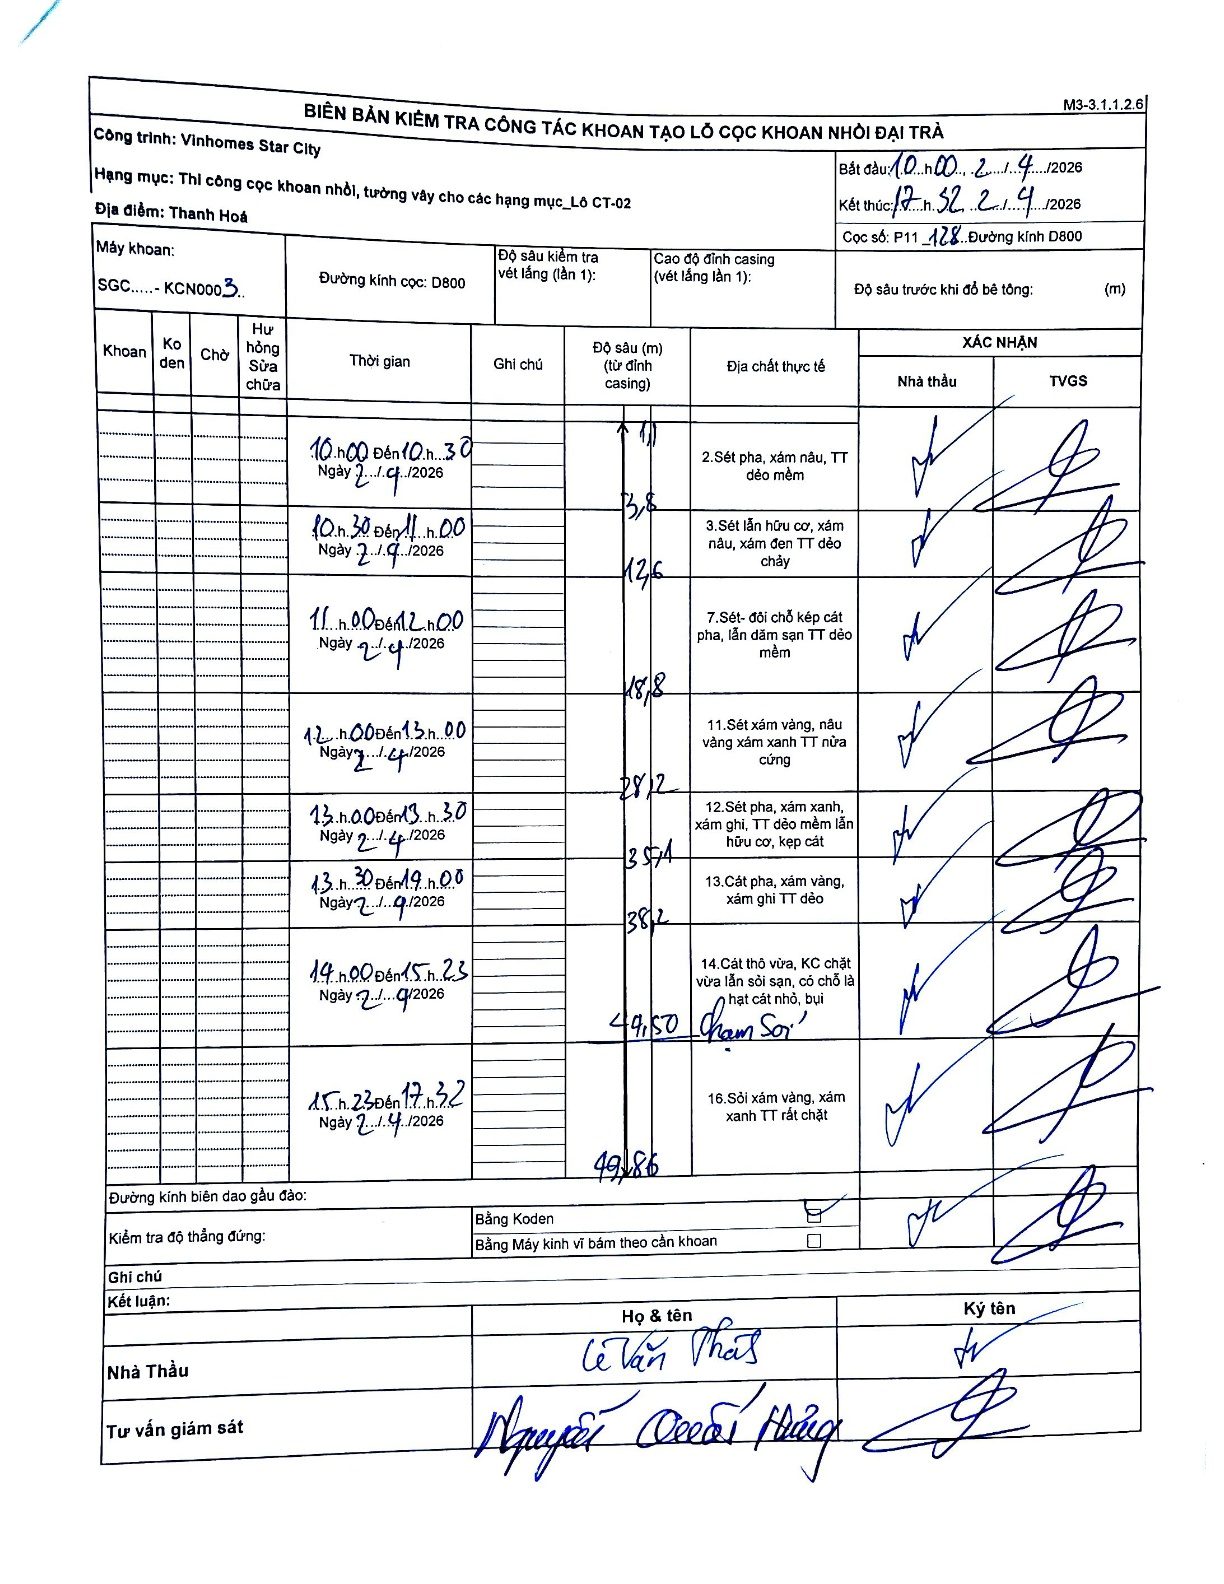 M3-3.1.1.2.6
BIÊN BẢN KIỂM TRA CÔNG TÁC KHOAN TẠO LỖ CỌC KHOAN NHỒI ĐẠI TRÀ
Công trình: Vinhomes Star City
Hạng mục: Thi công cọc khoan nhồi, tường vây cho các hạng mục_Lô CT-02
Địa điểm: Thanh Hoá
Bắt đầu: 10 h 00, 2/4/2026
Kết thúc: 17 h 32, 2/4/2026
Cọc số: P11_128 Đường kính D800
Máy khoan:
SGC.....- KCN0003
Đường kính cọc: D800
Độ sâu kiểm tra
vét lắng (lần 1):
Cao độ đỉnh casing
(vét lắng lần 1):
Độ sâu trước khi đổ bê tông: (m)
Khoan
Ko
den
Chờ
Hư
hỏng
Sửa
chữa
Thời gian
Ghi chú
Độ sâu (m)
(từ đỉnh
casing)
Địa chất thực tế
XÁC NHẬN
Nhà thầu
TVGS
1,1
10 h 00 Đến 10 h 30
Ngày 2/4/2026
2.Sét pha, xám nâu, TT
dẻo mềm
3,8
10 h 30 Đến 11 h 00
Ngày 2/4/2026
3.Sét lẫn hữu cơ, xám
nâu, xám đen TT dẻo
chảy
12,6
11 h 00 Đến 12 h 00
Ngày 2/4/2026
7.Sét- đôi chỗ kép cát
pha, lẫn dăm sạn TT dẻo
mềm
18,8
12 h 00 Đến 13 h 00
Ngày 2/4/2026
11.Sét xám vàng, nâu
vàng xám xanh TT nửa
cứng
28,2
13 h 00 Đến 13 h 30
Ngày 2/4/2026
12.Sét pha, xám xanh,
xám ghi, TT dẻo mềm lẫn
hữu cơ, kẹp cát
35,1
13 h 30 Đến 14 h 00
Ngày 2/4/2026
13.Cát pha, xám vàng,
xám ghi TT dẻo
38,2
14 h 00 Đến 15 h 23
Ngày 2/4/2026
14.Cát thô vừa, KC chặt
vừa lẫn sỏi sạn, có chỗ là
hạt cát nhỏ, bụi
44,50 Chạm Sỏi
15 h 23 Đến 17 h 32
Ngày 2/4/2026
16.Sỏi xám vàng, xám
xanh TT rất chặt
49,86
Đường kính biên dao gầu đào:
Kiểm tra độ thẳng đứng:
Bằng Koden
Bằng Máy kinh vĩ bám theo cần khoan
Ghi chú
Kết luận:
Họ & tên
Ký tên
Nhà Thầu
Lê Văn
Tư vấn giám sát
Hưng